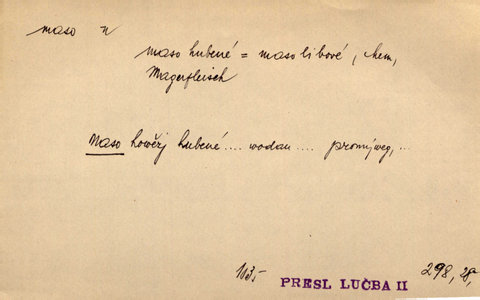 maso n
maso hubené = maso libové, chem,
Magerfleisch
Maso howězj hubené .... wodau .... promýweg, ...
1835 PRESL LUČBA II 298, 28,